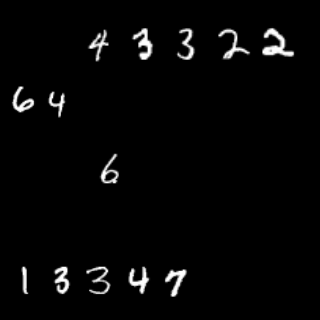 4 3 3 2 2
6 4
6
1 3 3 4 7